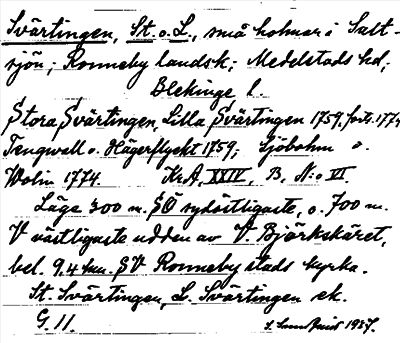 Svärtingen, St. o. L., små holmar i Salt-
sjön; Ronneby landsk; Medelstads hd,
Blekinge l.
Stora Svärtingen, Lilla Svärtingen 1759, fort. 1774
Tengwall o. Hägerflyckt 1759; Sjöbohm o.
Wolin 1774. Kr.A, XXIV, B, N:o VI
Läge 300 m. SÖ sydostligaste, o. 700 m.
V västligaste udden av V. Björkskäret,
bel. 9.4 km. SV Ronneby stads kyrka.
St. Svärtingen, L. Svärtingen ek.
G. 11. 1927.